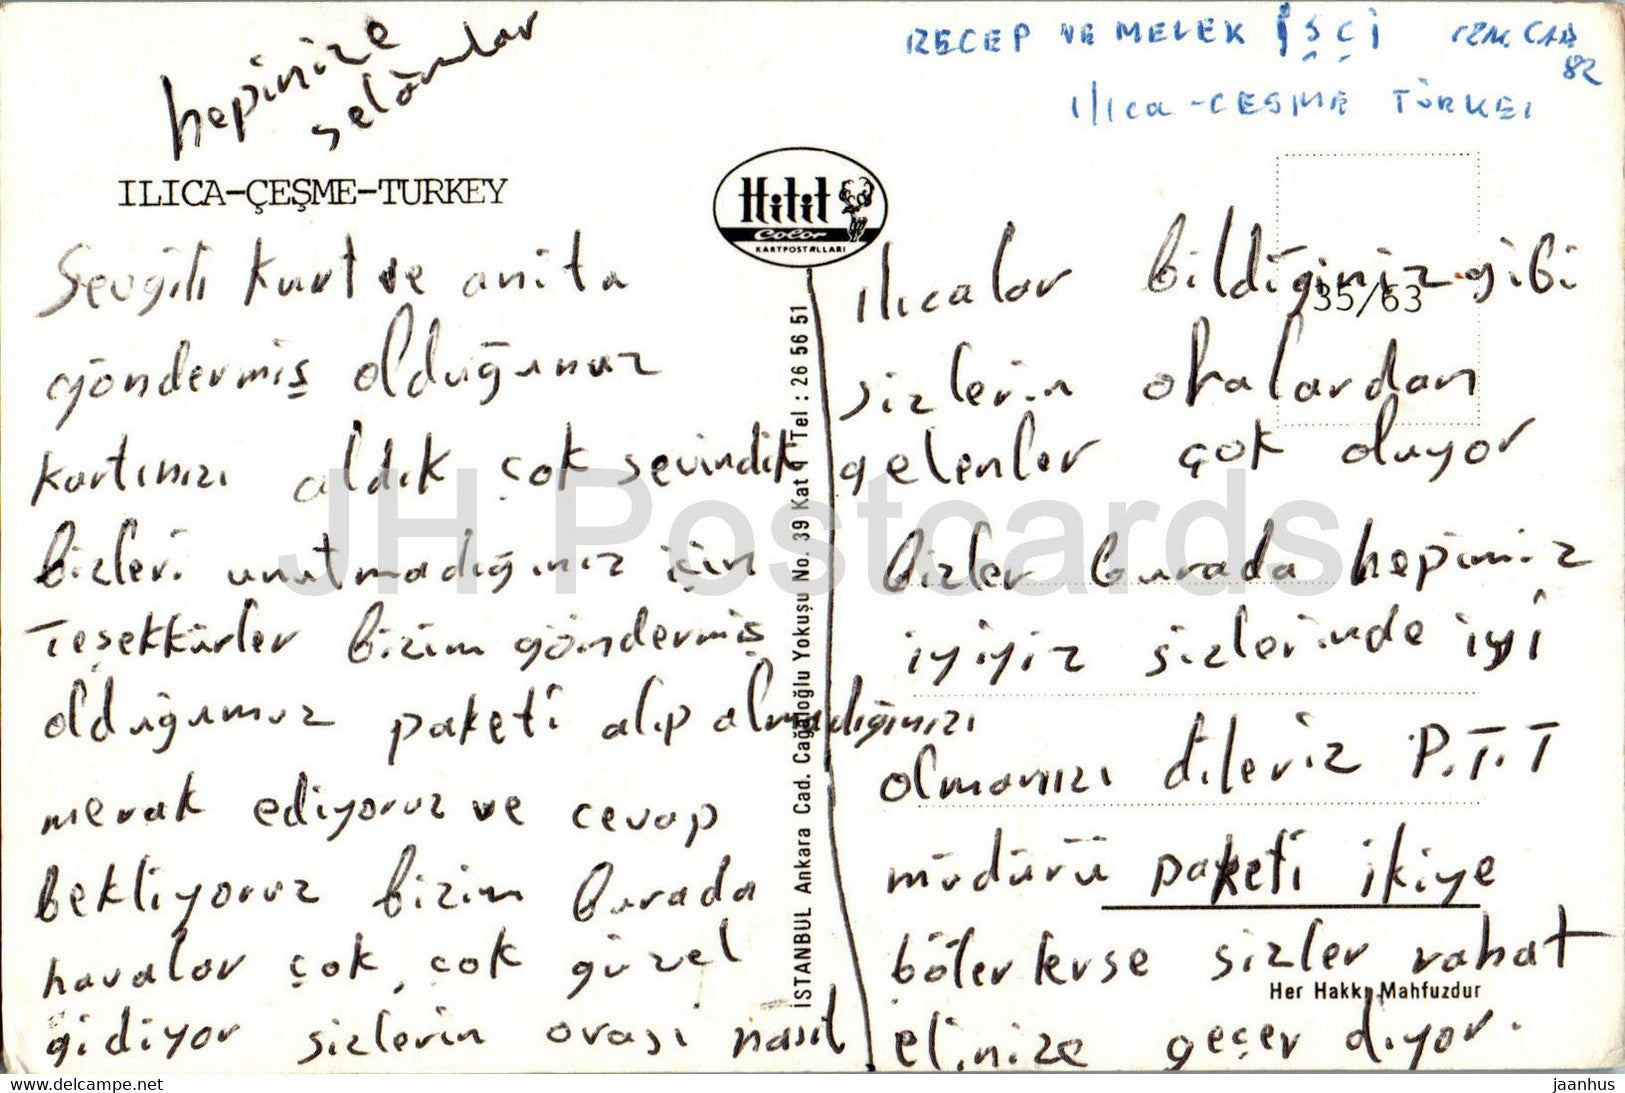 hepinize
selâmlar
RECEP VE MELEK İŞÇİ İZM. CAD
82
ılıca - CEŞME TÜRKEİ
ILICA-ÇEŞME-TURKEY
Hitit
Color
KARTPOSTALLARI
Sevgili Kurt ve anita
göndermiş olduğunuz
kartınızı aldık çok sevindik
bizleri unutmadığınız için
Teşekkürler bizim göndermiş
olduğumuz paketi alıp almadığınızı
merak ediyoruz ve cevap
bekliyoruz bizim burada
havalar çok, çok güzel
gidiyor sizlerin orası nasıl
İSTANBUL Ankara Cad. Cağaloğlu Yokuşu No. 39 Kat 1 Tel : 26 56 51
35/63
ılıcalar bildiğiniz gibi
sizlerin oralardan
gelenler çok oluyor
bizler burada hepimiz
iyiyiz sizlerinde iyi
olmanızı dileriz P.T.T
müdürü paketi ikiye
bölerlerse sizler rahat
elinize geçer diyor.
Her Hakkı Mahfuzdur
JH Postcards
https://www.delcampe.net
jaanhus